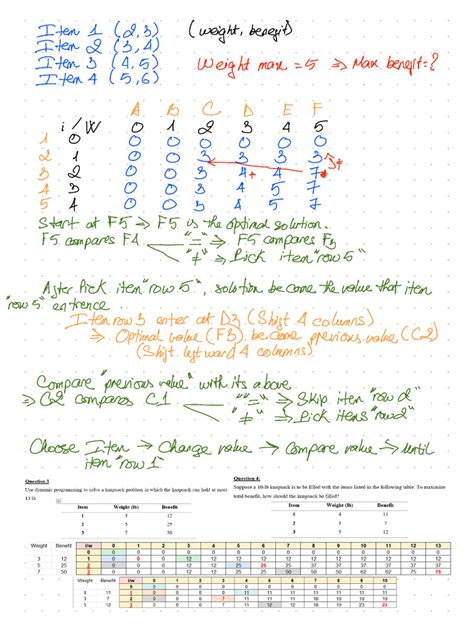 Item 1 (2,3) (weight, benefit)
Item 2 (3,4)
Item 3 (4,5) Weight max = 5 ⇒ Max benefit = ?
Item 4 (5,6)
A B C D E F
i / W 0 1 2 3 4 5
1 0 0 0 0 0 0 0
2 1 0 0 3 3 3 3
3 2 0 0 3 4 4 7
4 3 0 0 3 4 5 7
5 4 0 0 3 4 5 7
Start at F5 ⇒ F5 is the optimal solution.
F5 compares F4 "=" ⇒ F5 compares F3
"≠" ⇒ Pick item "row 5"
After Pick item "row 5", solution become the value that item
"row 5" entrence.
Item row 3 enter at D3 (Shift 4 columns)
⇒ Optimal value (F3) become previous value (C2)
(Shift leftward 4 columns)
Compare "previous value" with its above
⇒ C2 compares C1 "=" ⇒ Skip item "row 2"
"≠" ⇒ Pick items "row 2"
Choose Item → Change value → Compare value → Until
item "row 1"
Question 3
Use dynamic programming to solve a knapsack problem in which the knapsack can hold at most
13 lb.
Item Weight (lb) Benefit
1 3 12
2 5 25
3 7 50
Question 4:
Suppose a 10-lb knapsack is to be filled with the items listed in the following table. To maximize
total benefit, how should the knapsack be filled?
Item Weight (lb) Benefit
1 4 11
2 3 7
3 5 12
Weight Benefit i/w 0 1 2 3 4 5 6 7 8 9 10 11 12 13
0 0 0 0 0 0 0 0 0 0 0 0 0 0 0 0
3 12 1 0 0 0 12 12 12 12 12 12 12 12 12 12 12
5 25 2 0 0 0 12 12 25 25 25 37 37 37 37 37 37
7 50 3 0 0 0 12 12 25 25 50 50 50 62 62 75 75
Weight Benefit i/w 0 1 2 3 4 5 6 7 8 9 10
0 0 0 0 0 0 0 0 0 0 0 0 0
4 11 1 0 0 0 0 11 11 11 11 11 11 11
3 7 2 0 0 0 7 11 11 11 18 18 18 18
5 12 3 0 0 0 7 11 12 12 18 19 23 23